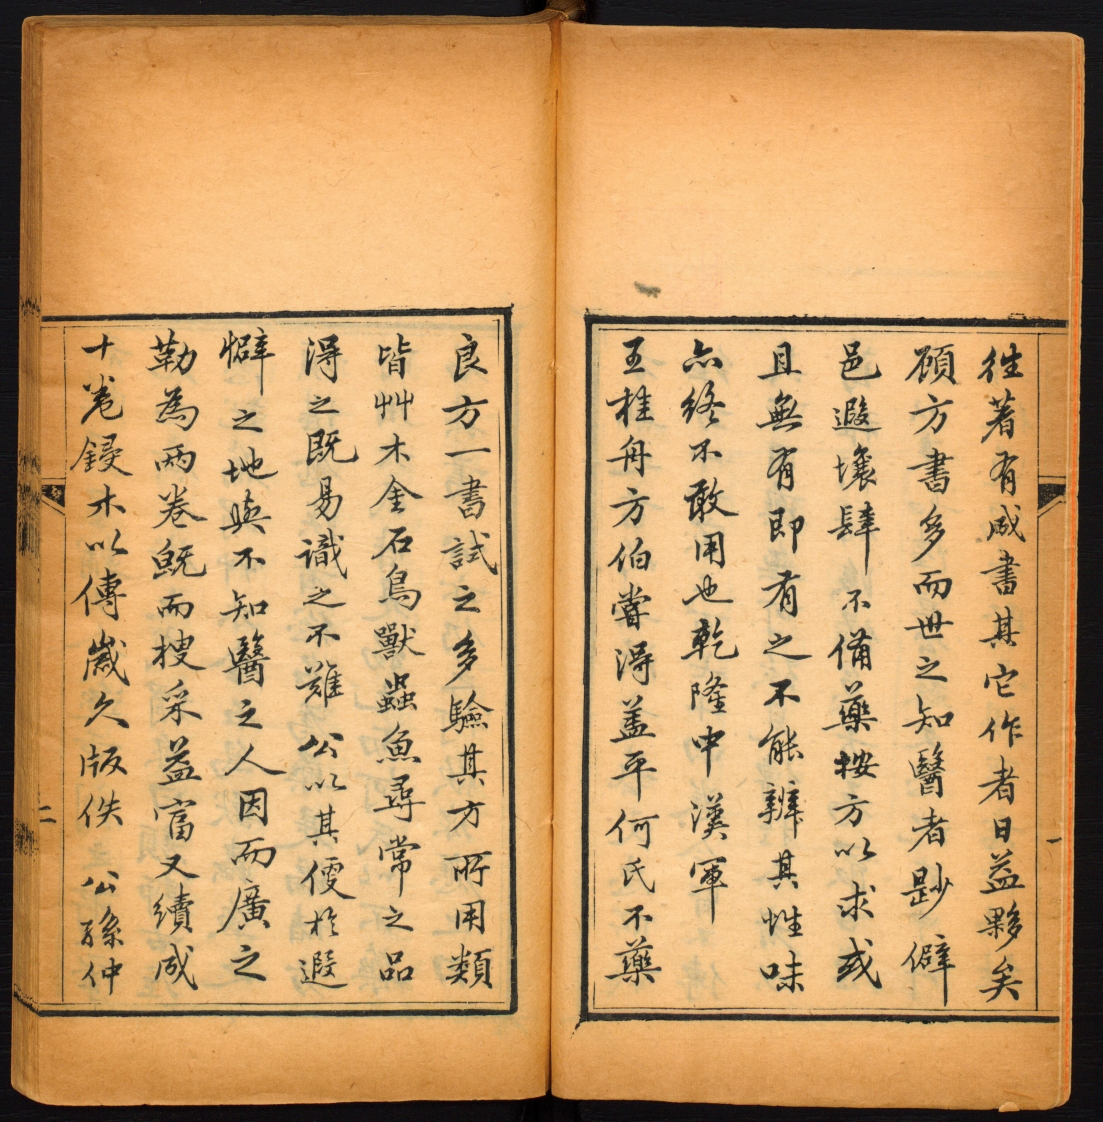 往著有成書其它作者日益夥矣
顧方書多而世之知醫者尟僻
邑遐壤肆不備藥按方以求或
且無有即有之不能辨其性味
亦終不敢用也乾隆中漢軍
王桂舟方伯嘗得蓋平何氏不藥
一
良方一書試之多驗其方所用類
皆艸木金石鳥獸蟲魚尋常之品
得之既易識之不難公以其便於遐
僻之地與不知醫之人因而廣之
勒為兩卷既而搜采益富又續成
十卷鋟木以傳歲久版佚公孫仲
二